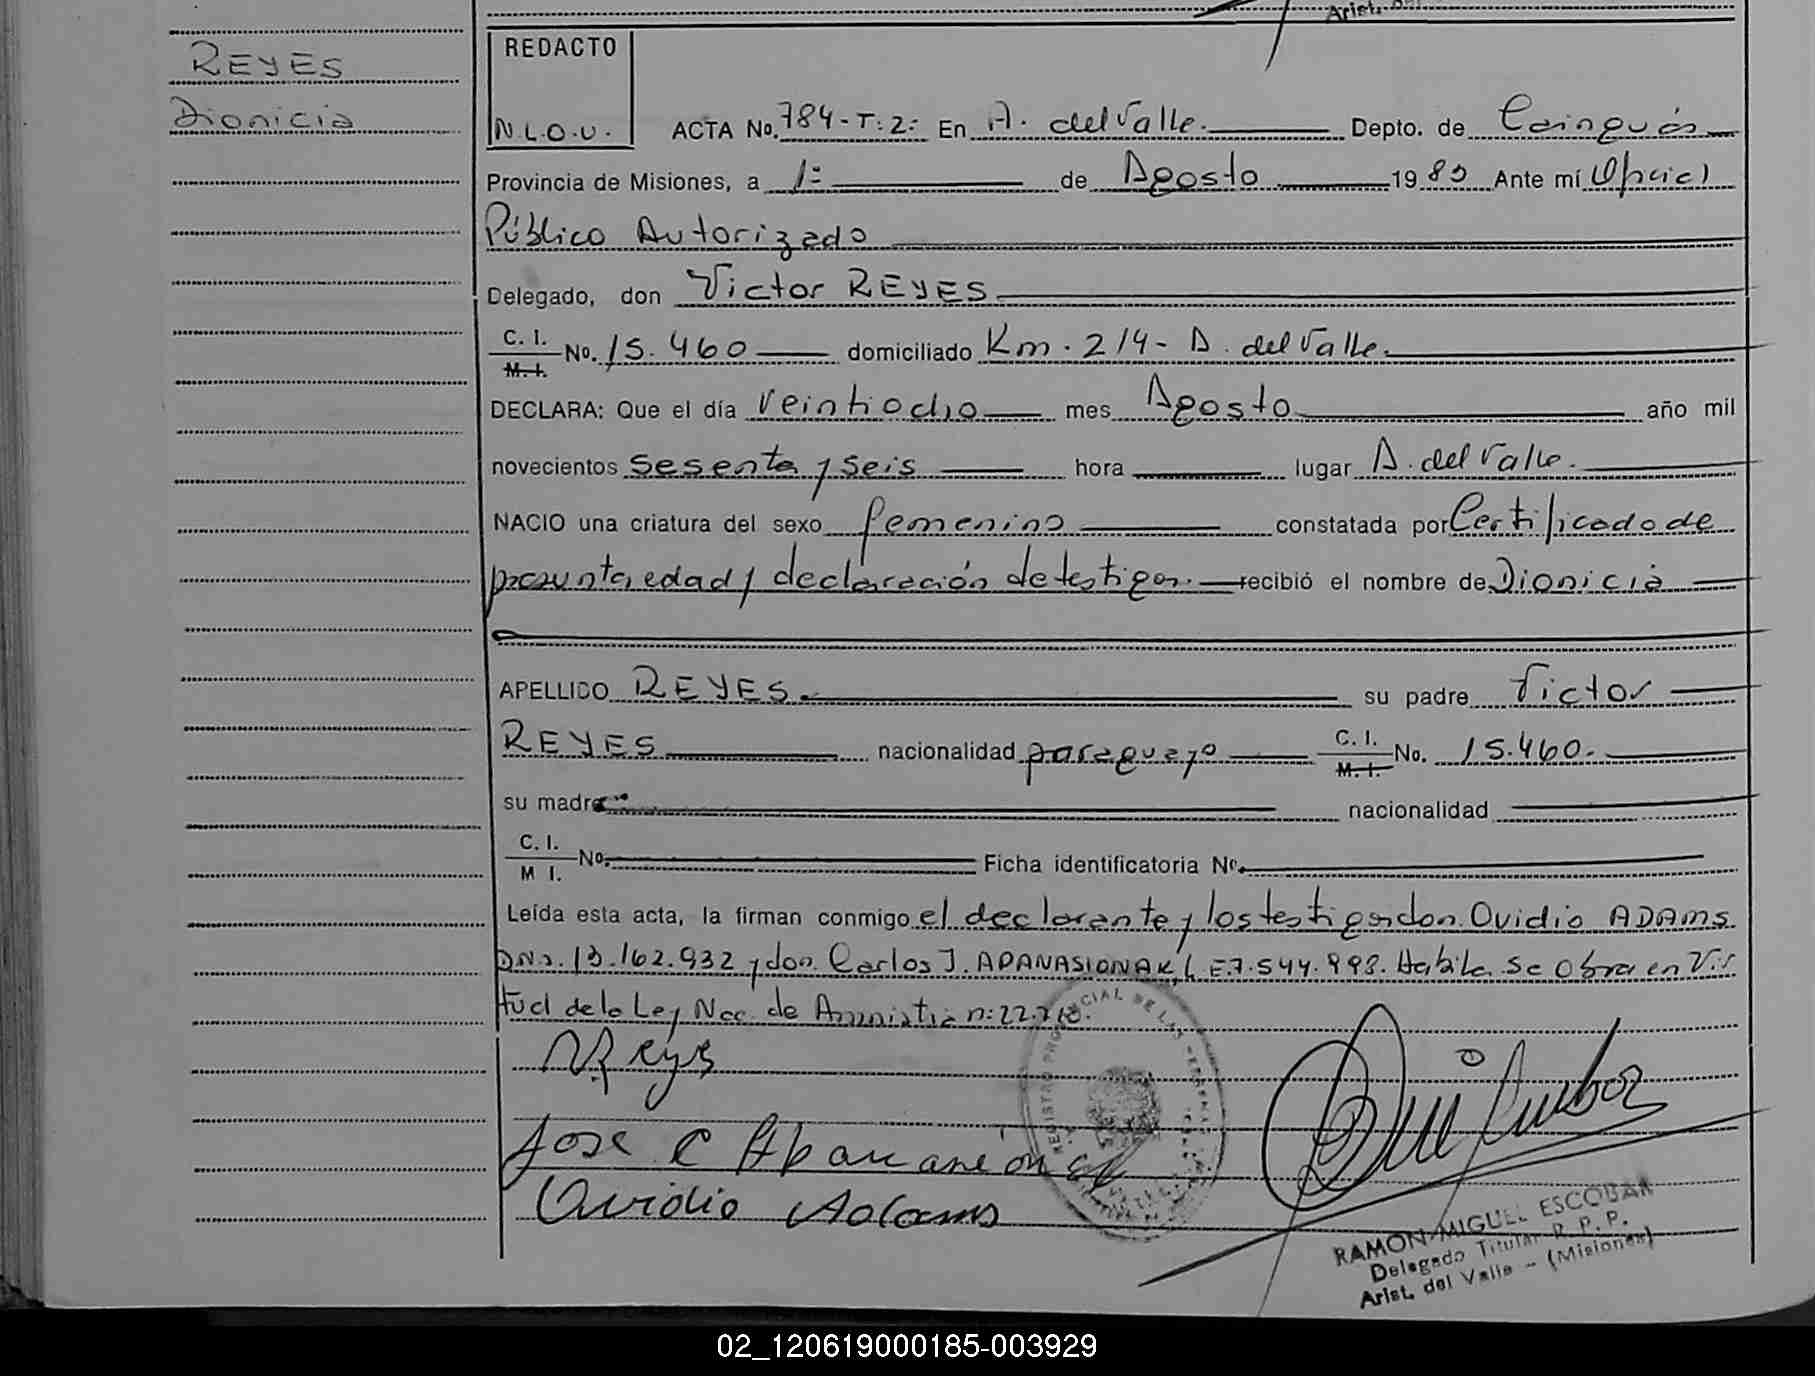 Arist.
REYES
Dionicia
REDACTO
N.L.O.U.
ACTA No. 784-T:2: En A. del Valle. Depto. de Cainguás
Provincia de Misiones, a 1º de Agosto 1980 Ante mí Oficial
Público Autorizado
Delegado, don Victor REYES
C. I.
M. I.
No. 15.460 domiciliado Km. 214- A. del Valle.
DECLARA: Que el día veintiocho mes Agosto año mil
novecientos sesenta y seis hora lugar A. del Valle.
NACIO una criatura del sexo femenino constatada por Certificado de
presunta edad y declaración de testigos. recibió el nombre de Dionicia
APELLIDO REYES. su padre Victor
REYES nacionalidad paraguayo C. I. M. I. No. 15.460.
su madre nacionalidad
C. I. M I. No. Ficha identificatoria Nº.
Leída esta acta, la firman conmigo el declarante y los testigos don Ovidio ADAMS
DNI. 13.162.932 y don Carlos J. APANASIONAK, L.E.7.544.998. Habil. Se Obra en Vir
tud de la Ley Nac. de Amnistia n: 22.
V. Reyes
Jose C
Ovidio Adams
REGISTRO PROVINCIAL DE LAS PERSONAS
RAMON MIGUEL ESCOBAR
Delegado Titular R. P. P.
Arist. del Valle - (Misiones)
02_120619000185-003929